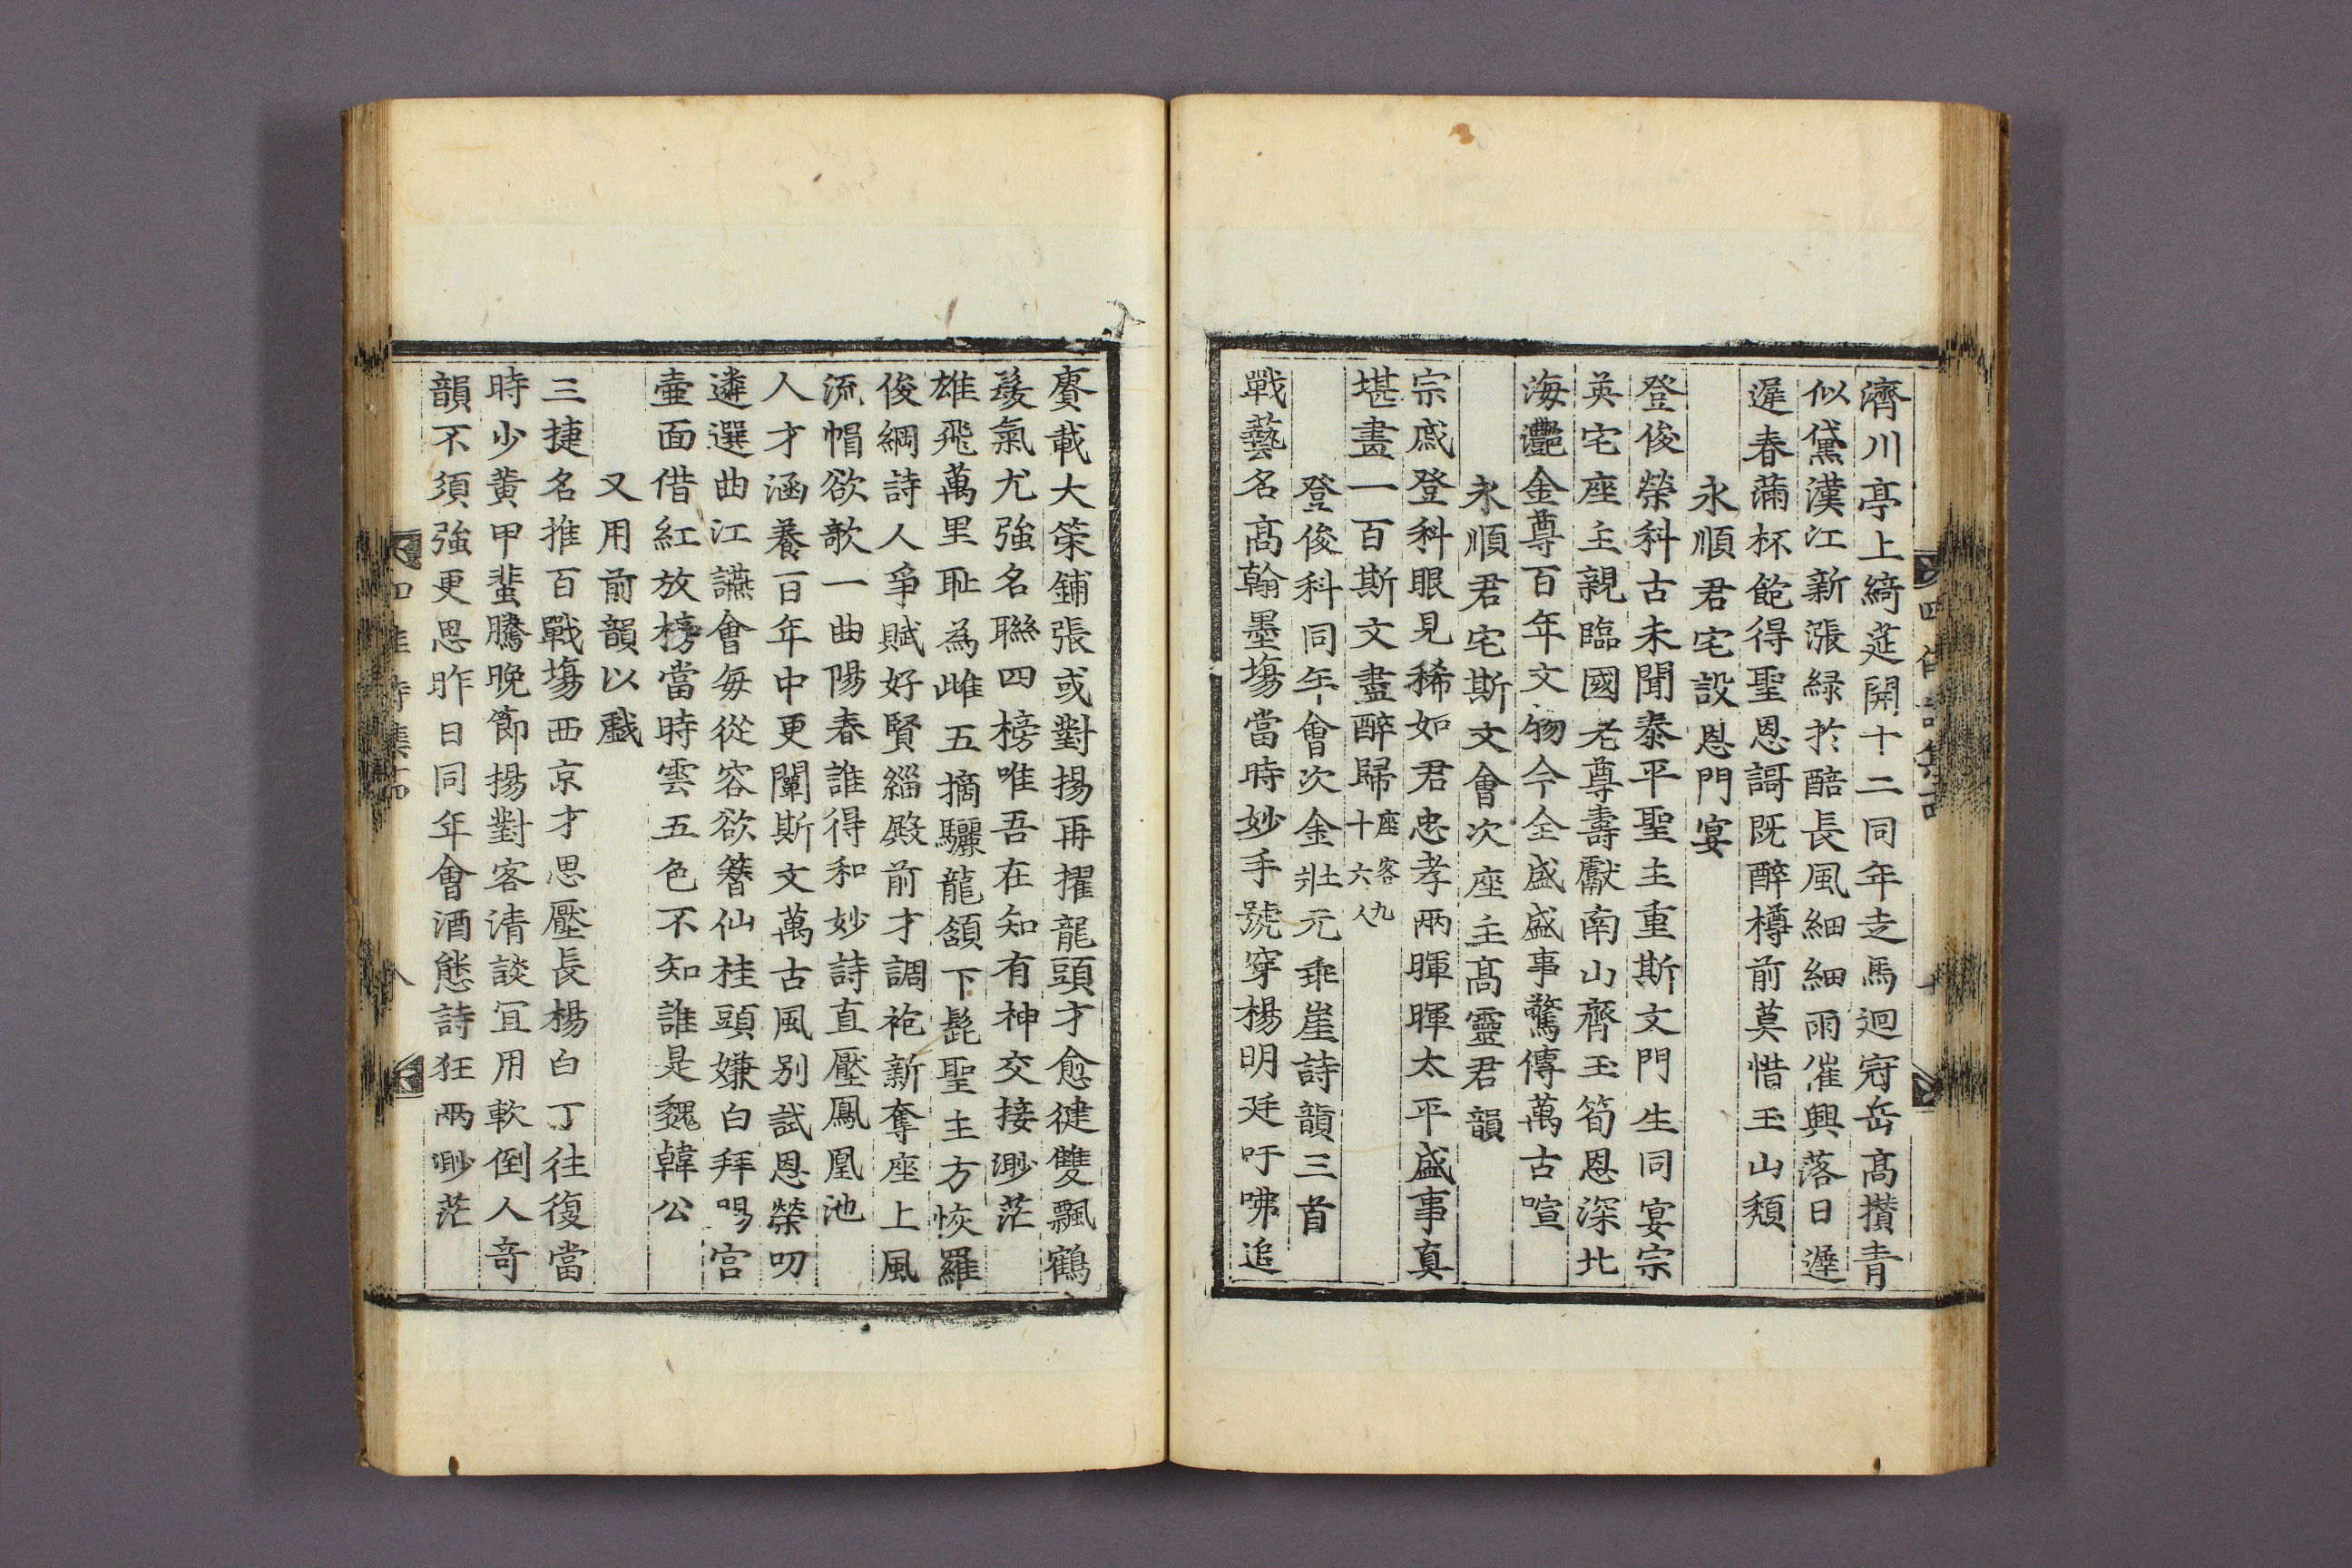 濟川亭上綺莚開十二同年走馬迴冠岳髙攅青
似黛漢江新漲緑扵醅長風細細雨催興落日遲
遲春滿杯飽得聖恩謌既醉樽前莫惜玉山頹
永順君宅設恩門宴
登俊榮科古未聞泰平聖主重斯文門生同宴宗
英宅座主親臨國老尊壽獻南山齊玉筍恩深北
海灔金尊百年文物今全盛盛事驚傳萬古喧
永順君宅斯文會次座主髙靈君韻
宗戚登科眼見稀如君忠孝兩暉暉太平盛事真
堪畫一百斯文盡醉歸座客九十六人
登俊科同年會次金壯元乖崖詩韻三首
戰藝名髙翰墨塲當時妙手號穿楊明廷吁咈追
賡載大策鋪張或對揚再擢龍頭才愈健雙飄鶴
髮氣尤強名聯四榜唯吾在知有神交接渺茫
雄飛萬里耻為雌五摘驪龍頷下髭聖主方恢羅
俊網詩人爭賦好賢緇殿前才調袍新奪座上風
流帽欲欹一曲陽春誰得和妙詩直壓鳳凰池
人才涵養百年中更闡斯文萬古風别試恩榮叨
遴選曲江讌會每從容欲簪仙桂頭嫌白拜喝宫
壷面借紅放榜當時雲五色不知誰是魏韓公
又用前韻以戱
三捷名推百戰塲西京才思壓長楊白丁往復當
時少黄甲蜚騰晩節揚對客清談冝用軟倒人奇
韻不須強更思昨日同年會酒態詩狂兩渺茫